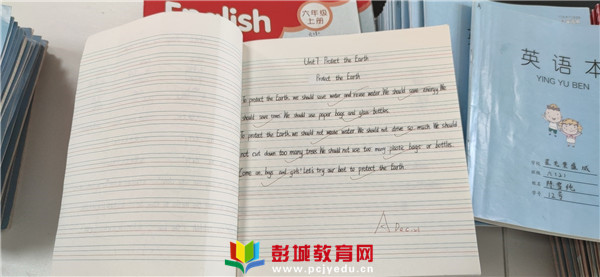 English
六年级
上册
Unit 7 Protect the Earth
Protect the Earth
To protect the Earth, we should save water and reuse water. We should save energy. We
should save trees. We should use paper bags and glass bottles.
To protect the Earth, we should not waste water. We should not drive so much. We should
not cut down too many trees. We should not use too many plastic bags or bottles.
Come on, boys and girls! Let's try our best to protect the Earth.
A
Dec.
英语本
YING YU BEN
学校
班级
姓名
学号 12号
彭城教育网
www.pcjyedu.cn